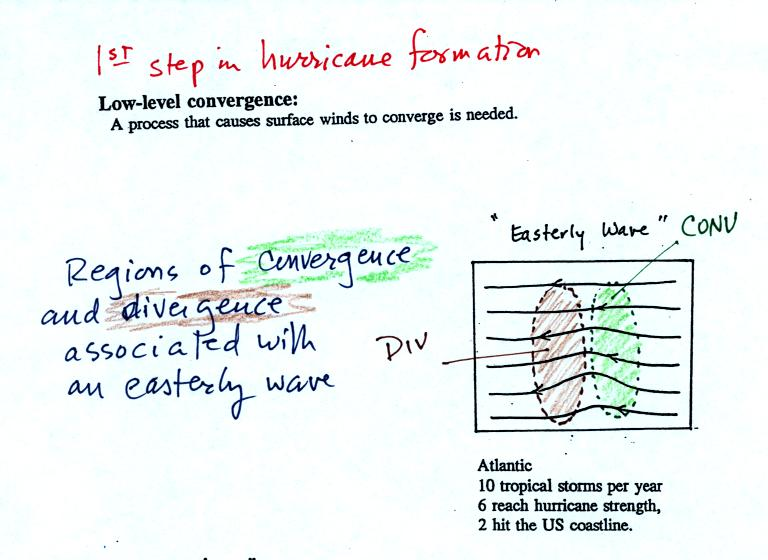 1ST step in hurricane formation
Low-level convergence:
A process that causes surface winds to converge is needed.
"Easterly Wave" CONV
Regions of convergence
and divergence
associated with
an easterly wave
DIV
Atlantic
10 tropical storms per year
6 reach hurricane strength,
2 hit the US coastline.